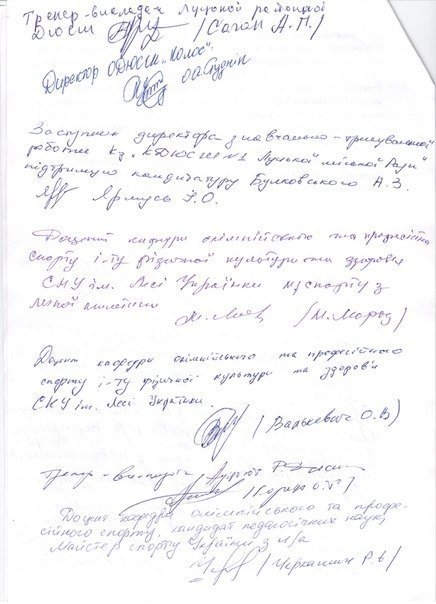 Тренер-викладач Луцької районної
ДЮСШ /Саган А.П./
Директор ОДЮСШ „Колос".
О.А. Студнік
Заступник директора з навчально-тренувальної
роботи КЗ „КДЮСШ №1 Луцької міської Ради"
підтримую кандидатуру Булковського А.З.
Ярмусь
Доцент кафедри олімпійського та професійного
спорту і-ту фізичної культури та здоров'я
СНУ ім. Лесі Українки мс спорту з
легкої атлетики
/М. Мороз/
Доцент кафедри олімпійського та професійного
спорту і-ту фізичної культури та здоров'я
СНУ ім. Лесі Українки.
/Валькевич О.В/
тренер-викладач
Доцент кафедри олімпійського та профе-
сійного спорту, кандидат педагогічних наук,
Майстер спорту України з л/а
/Черкашин Р.